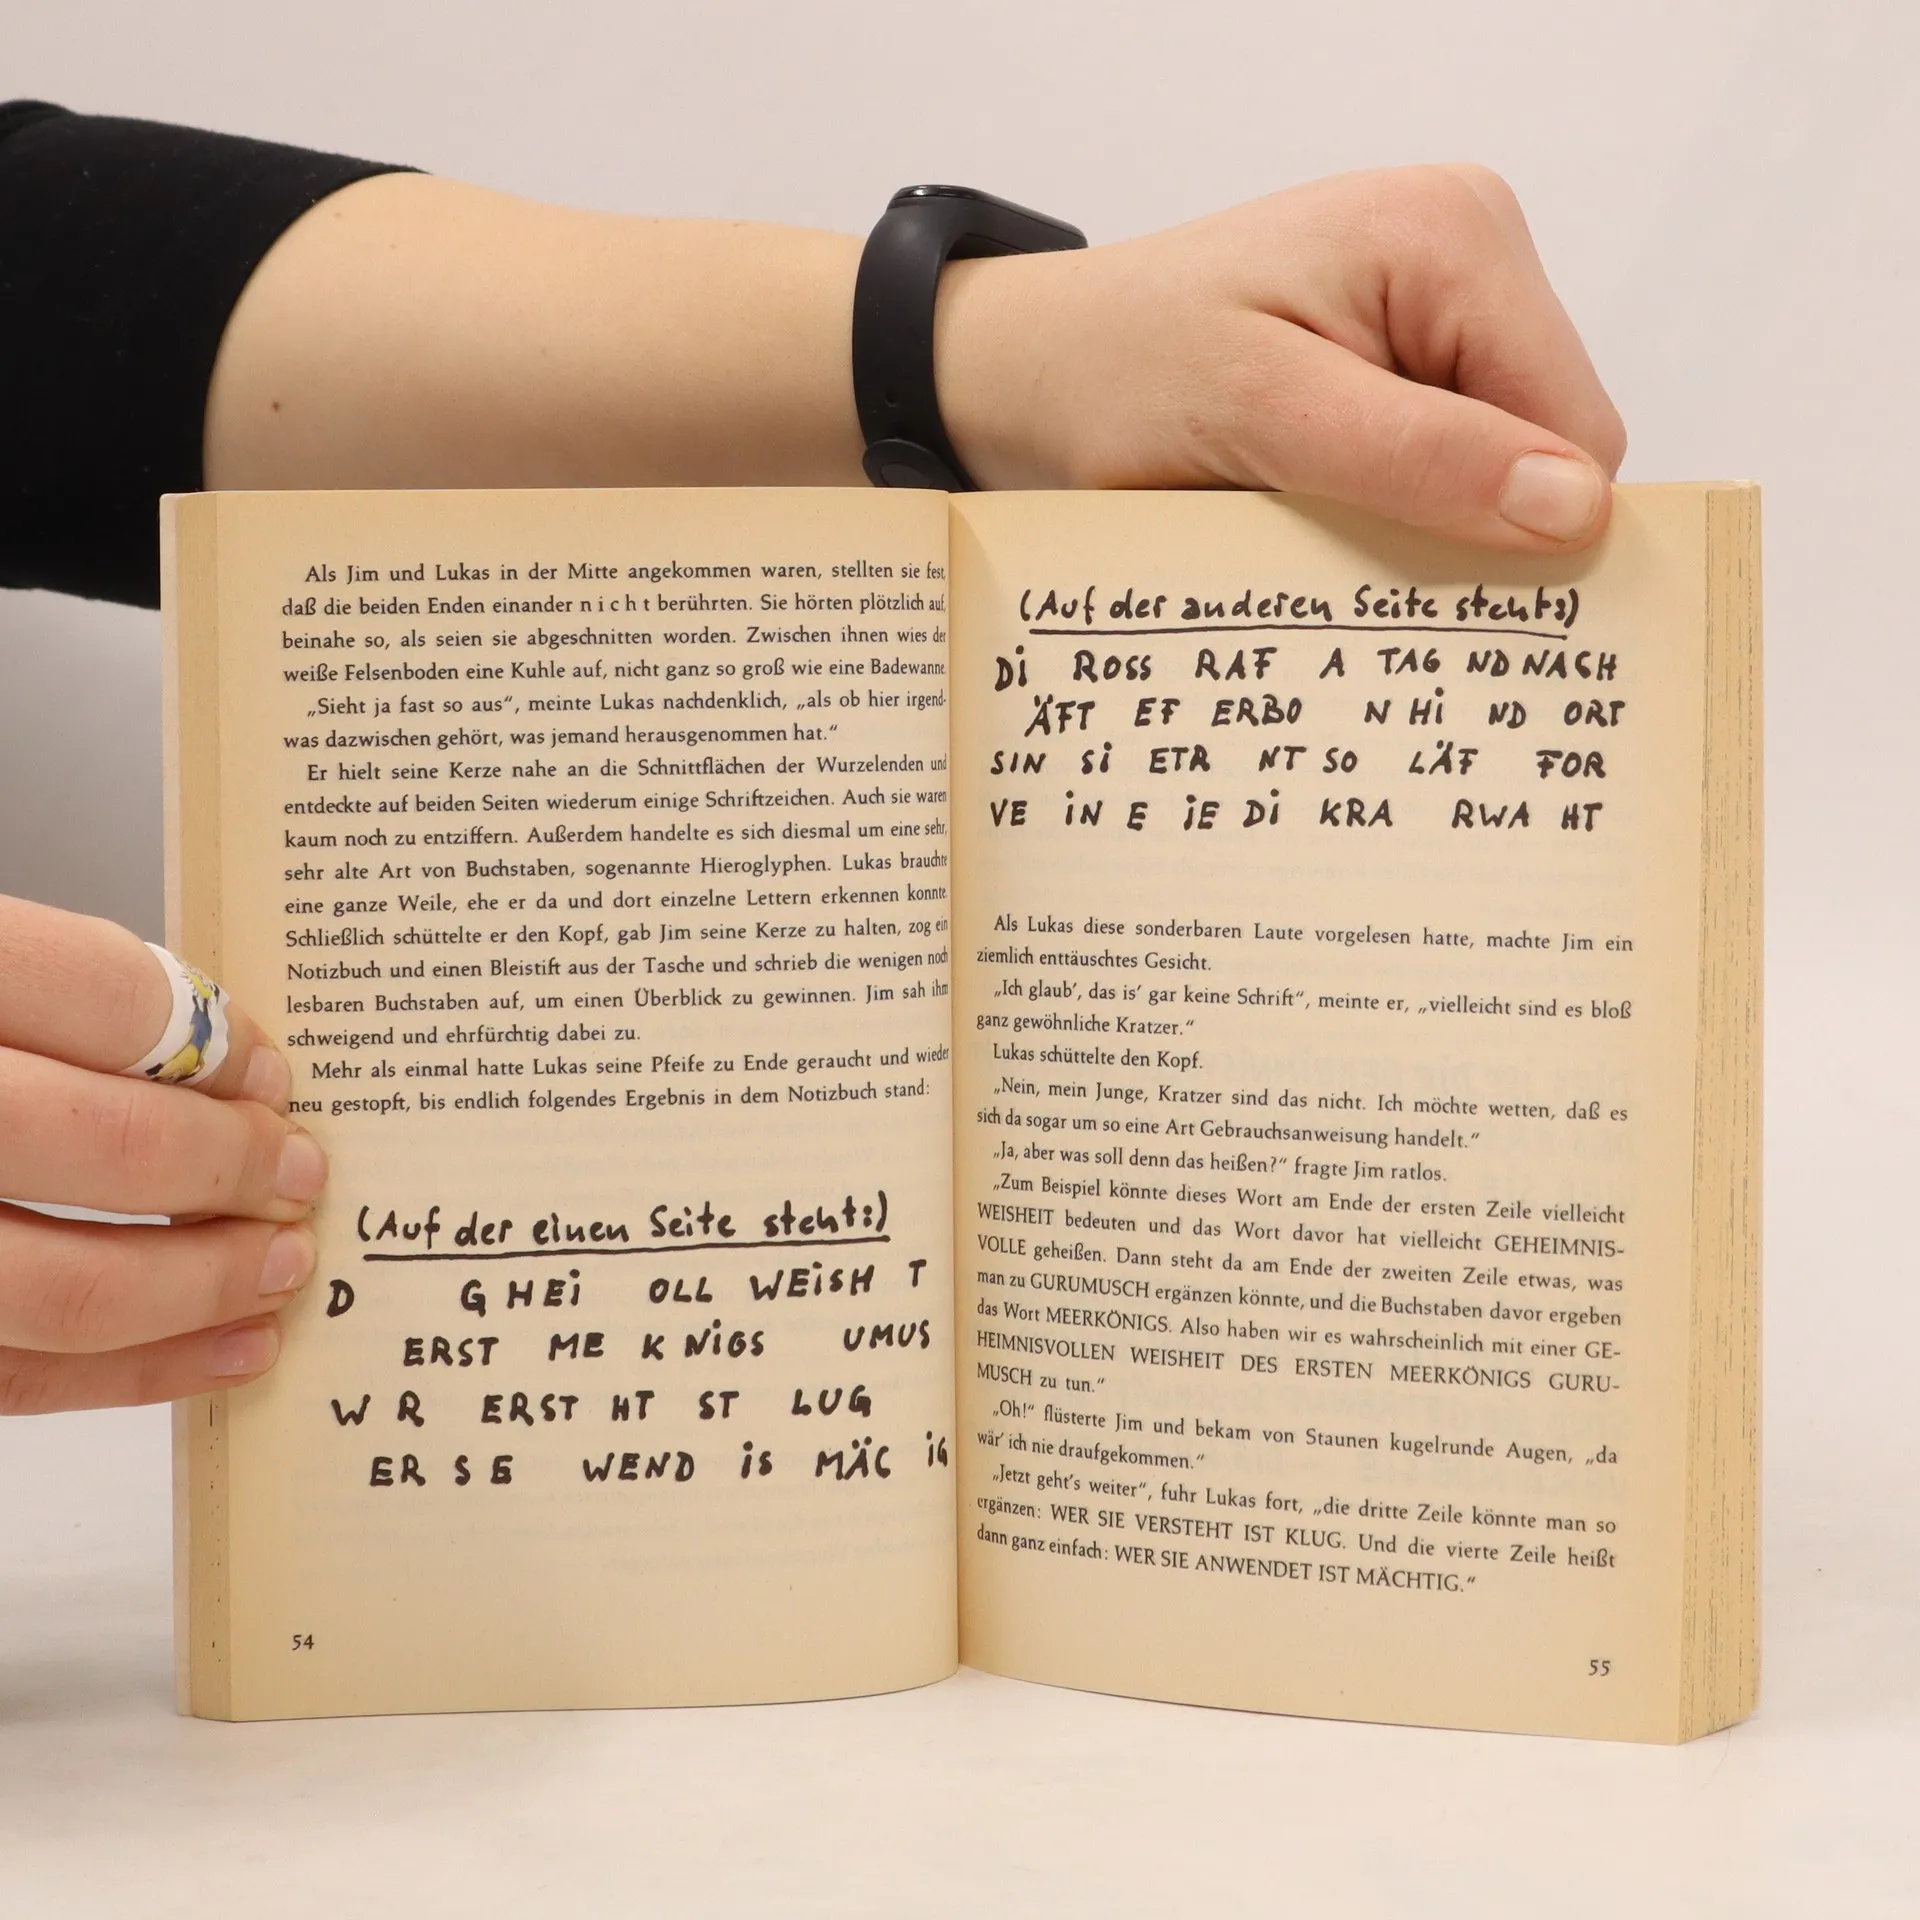 Als Jim und Lukas in der Mitte angekommen waren, stellten sie fest,
daß die beiden Enden einander n i c h t berührten. Sie hörten plötzlich auf,
beinahe so, als seien sie abgeschnitten worden. Zwischen ihnen wies der
weiße Felsenboden eine Kuhle auf, nicht ganz so groß wie eine Badewanne.
„Sieht ja fast so aus“, meinte Lukas nachdenklich, „als ob hier irgend-
was dazwischen gehört, was jemand herausgenommen hat.“
Er hielt seine Kerze nahe an die Schnittflächen der Wurzelenden und
entdeckte auf beiden Seiten wiederum einige Schriftzeichen. Auch sie waren
kaum noch zu entziffern. Außerdem handelte es sich diesmal um eine sehr,
sehr alte Art von Buchstaben, sogenannte Hieroglyphen. Lukas brauchte
eine ganze Weile, ehe er da und dort einzelne Lettern erkennen konnte.
Schließlich schüttelte er den Kopf, gab Jim seine Kerze zu halten, zog ein
Notizbuch und einen Bleistift aus der Tasche und schrieb die wenigen noch
lesbaren Buchstaben auf, um einen Überblick zu gewinnen. Jim sah ihm
schweigend und ehrfürchtig dabei zu.
Mehr als einmal hatte Lukas seine Pfeife zu Ende geraucht und wieder
neu gestopft, bis endlich folgendes Ergebnis in dem Notizbuch stand:
(Auf der einen Seite steht:)
D G HEi OLL WEiSH T
ERST ME K NiGS UMUS
W R ERST HT ST LUG
ER S E WEND iS MÄC iG
54
(Auf der anderen Seite steht:)
Di ROSS RAF A TAG ND NACH
ÄFT EF ERBO N Hi ND ORT
SIN Si ETR NT SO LÄF FOR
VE iN E iE Di KRA RWA HT
Als Lukas diese sonderbaren Laute vorgelesen hatte, machte Jim ein
ziemlich enttäuschtes Gesicht.
„Ich glaub’, das is’ gar keine Schrift“, meinte er, „vielleicht sind es bloß
ganz gewöhnliche Kratzer.“
Lukas schüttelte den Kopf.
„Nein, mein Junge, Kratzer sind das nicht. Ich möchte wetten, daß es
sich da sogar um so eine Art Gebrauchsanweisung handelt.“
„Ja, aber was soll denn das heißen?“ fragte Jim ratlos.
„Zum Beispiel könnte dieses Wort am Ende der ersten Zeile vielleicht
WEISHEIT bedeuten und das Wort davor hat vielleicht GEHEIMNIS-
VOLLE geheißen. Dann steht da am Ende der zweiten Zeile etwas, was
man zu GURUMUSCH ergänzen könnte, und die Buchstaben davor ergeben
das Wort MEERKÖNIGS. Also haben wir es wahrscheinlich mit einer GE-
HEIMNISVOLLEN WEISHEIT DES ERSTEN MEERKÖNIGS GURU-
MUSCH zu tun.“
„Oh!“ flüsterte Jim und bekam von Staunen kugelrunde Augen, „da
wär’ ich nie draufgekommen.“
„Jetzt geht’s weiter“, fuhr Lukas fort, „die dritte Zeile könnte man so
ergänzen: WER SIE VERSTEHT IST KLUG. Und die vierte Zeile heißt
dann ganz einfach: WER SIE ANWENDET IST MÄCHTIG.“
55